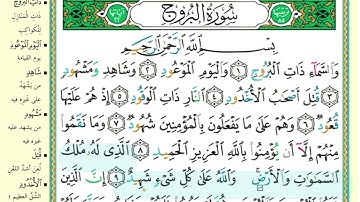 سُورَةُ البُرُوجِ
بِسْمِ اللَّهِ الرَّحْمَٰنِ الرَّحِيمِ
وَالسَّمَاءِ ذَاتِ الْبُرُوجِ ١ وَالْيَوْمِ الْمَوْعُودِ ٢ وَشَاهِدٍ وَمَشْهُودٍ
٣ قُتِلَ أَصْحَابُ الْأُخْدُودِ ٤ النَّارِ ذَاتِ الْوَقُودِ ٥ إِذْ هُمْ عَلَيْهَا
قُعُودٌ ٦ وَهُمْ عَلَىٰ مَا يَفْعَلُونَ بِالْمُؤْمِنِينَ شُهُودٌ ٧ وَمَا نَقَمُوا
مِنْهُمْ إِلَّا أَن يُؤْمِنُوا بِاللَّهِ الْعَزِيزِ الْحَمِيدِ ٨ الَّذِي لَهُ مُلْكُ
السَّمَاوَاتِ وَالْأَرْضِ وَاللَّهُ عَلَىٰ كُلِّ شَيْءٍ شَهِيدٌ ٩ إِنَّ الَّذِينَ
ذَاتِ الْبُرُوجِ
ذات المنازل
للكواكب
الْيَوْمِ الْمَوْعُودِ
يوم القيامة
شَاهِدٍ
من يشهد
على غيره فيه
مَشْهُودٍ
من يشهد عليه
غيره فيه
قُتِلَ
لُعِنَ أشدّ اللعن
الْأُخْدُودِ
الشّقّ العظيم